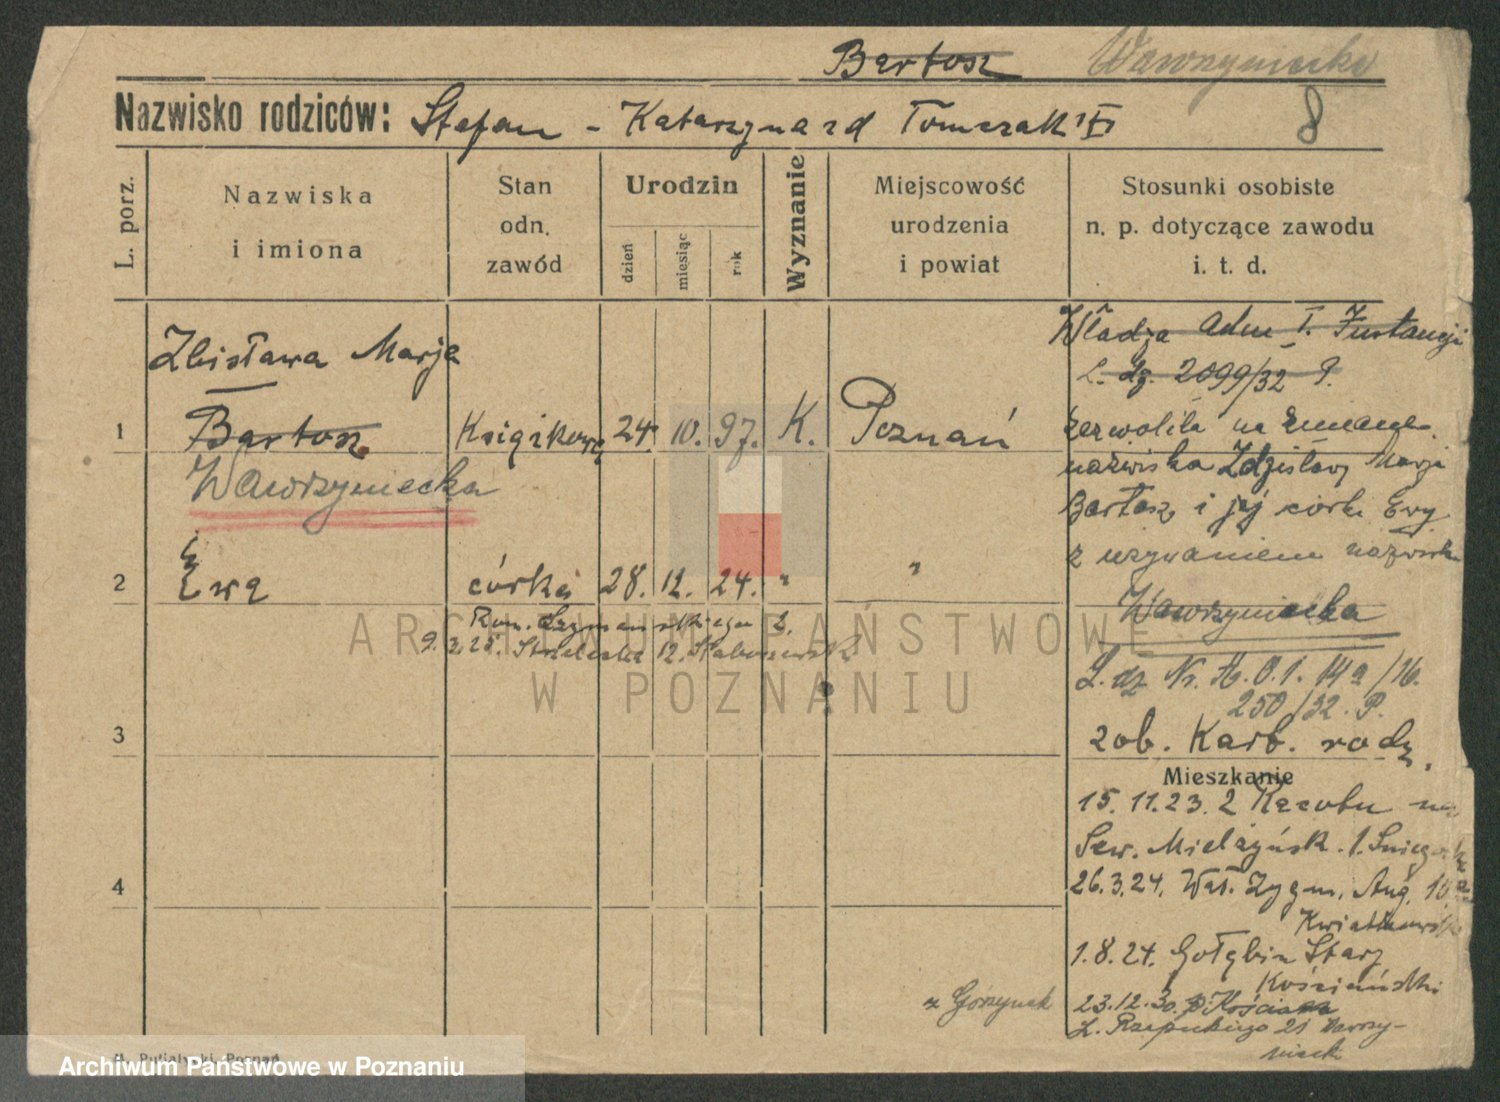 Bartosz Wawrzyniecka
Nazwisko rodziców: Stefan - Katarzyna zd Tomczak
8
L. porz.
Nazwiska
i imiona
Stan
odn.
zawód
Urodzin
dzień
miesiąc
rok
Wyznanie
Miejscowość
urodzenia
i powiat
Stosunki osobiste
n. p. dotyczące zawodu
i. t. d.
Zbisława Marja
1 Bartosz Książkową 24 10. 97. K. Poznań
Wawrzyniecka
2 Ewa córka 28. 12. 24. " "
9.3.25. Strzelecka 12.
3
4
Władza adm I. Instancji
L. dz. 2099/32 P.
zezwoliła na zmianę
nazwiska Zdzisławy Marji
Bartosz i jej córki Ewy
z używaniem nazwiska
Wawrzyniecka
L. dz Nr. A. O. 1. 14a/16.
250/32. P.
zob. Kart. rodz.
Mieszkanie
15. 11. 23. z
Sew. Mielżyńsk. 1.
26.3.24. Wał. Zygm. Aug. 10
1.8.24. Gołębin Stary
Kościański
23.12.30. p. Kościan
z Górzynek
M. Putiatycki, Poznań
ARCHIWUM PAŃSTWOWE
W POZNANIU
Archiwum Państwowe w Poznaniu